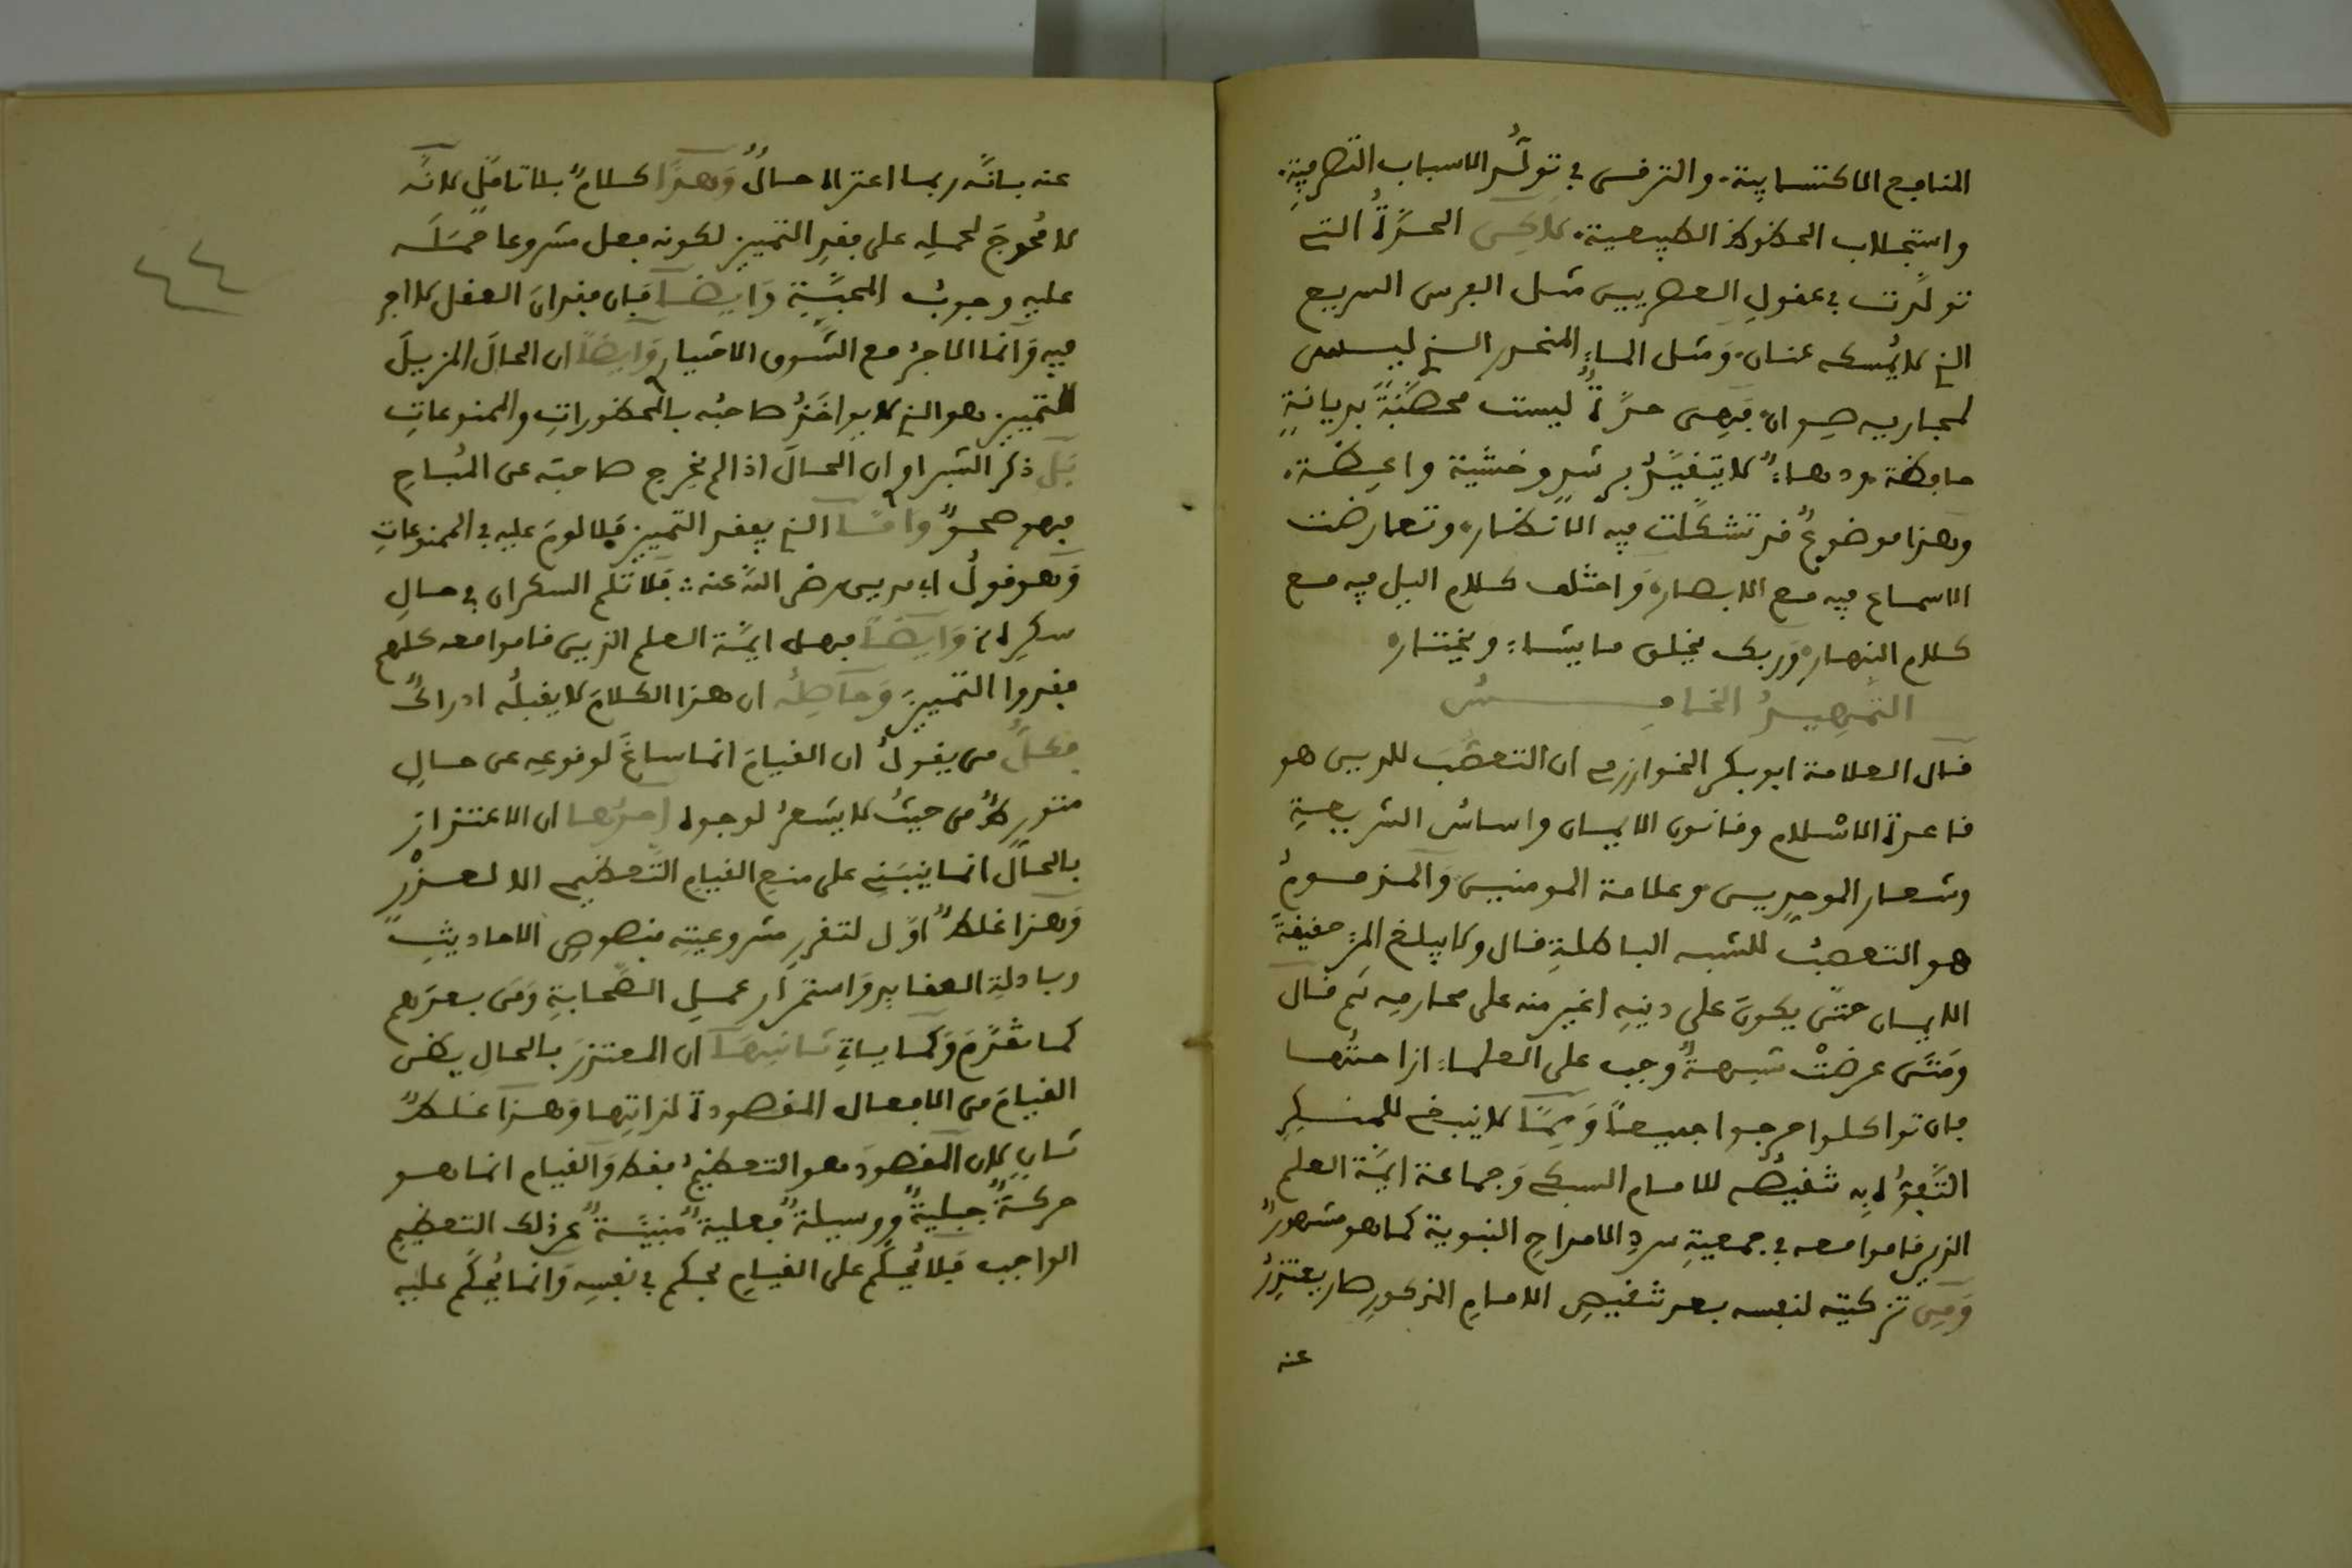 المنافع الاكتسابية. والترفى في تولّد الاسباب التصرفيةِ.
واستجلاب الحظوظ الطبيعية. لاكن الحدّةُ التى
تولّدت في عقولِ العصريين مثل الفرس السريع
الذى لايُمسكه عنان، ومثل الماءِ المنحدر الذى ليس
لمجاريه صِوان، فهى حدّةٌ ليست محصّنةً بديانةٍ
حافظة ودهاءٌ لا يتقيّدُ برشدٍ وخشية واعظة.
وهذا موضوعٌ قد تشكّلت فيه الانظار، وتعارضت
الاسماع فيه مع الابصار، واختلف كلام اليل فيه مع
كلام النهار، وربك يخلق ما يشاء ويختار،
التمهيدُ الخامسُ
قال العلامة ابو بكر الخوارزمى ان التعصّبَ للدين هو
قاعدة الاسلام وقانون الايمان واساسُ الشريعةِ
وشعار الموحدين وعلامة المومنين والمذمومُ
هو التعصبُ للشبه الباطلةِ قال ولا يبلغ المرء حقيقةَ
الايمان حتى يكونَ على دينِهِ اغير منه على محارمِه ثم قال
ومتى عرضتْ شبهةٌ وجب على العلماءِ ازاحتُها
فان تواكلوا حرجوا جميعاً ومِمّا لا ينبغى للمنكِرِ
التّفوّه به تنقيصُه للامام السبكى وجماعة ايمّة العلم
الذين قاموا معه في جمعيةِ سردِ الامداحِ النبوية كما هو مشهورٌ
ومِن تزكيته لنفسه بعد تنقيصِ الامامِ المذكورِ صار يعتذِرُ
عنه
عنه بانّه ربما اعتراه حالٌ وهذا كلامٌ بلا تاملٍ لانّه
لا مُحوجَ لحملِهِ على فقدِ التمييز لكونه فعل مشروعا حمَلَه
عليهِ وجوبُ المحبّةِ وايضا فان فقدانَ العقل لا اجر
فيهِ وانما الاجرُ مع الشوق الاختيار وايضاً ان الحالَ المزيلَ
للتمييز هو الذى لا يواخَذُ صاحبُه بالمحظوراتِ والممنوعاتِ
بل ذكر الشبراو ان الحالَ اذا لم يخرِج صاحبَه عن المُباحِ
فهو صحوٌ وامّا الذى يفقد التمييز فلا لومَ عليه في الممنوعاتِ
وهو قولُ ابى مدين رضى اللّه عنه: فلا تلم السكران في حالِ
سكرِه، وايضاً فهل ايمّة العلم الذين قاموا معه كلهم
فقدوا التمييزَ وحاصلُه ان هذا الكلامَ لا يقبلُه ادراكُ
فكلُّ من يقولُ ان القيامَ انما ساغَ لوقوعِه عن حالٍ
متورطٌ من حيثُ لا يشعرُ لوجوه احدُها ان الاعتذارَ
بالحال انما ينبَنِى على منعِ القيامِ التعظيمى الا لعذْرٍ
وهذا غلطٌ اوّل لتقررِ مشروعيتِه بنصوصِ الاحاديثِ
وبادلةِ العقايدِ واستمرارِ عملِ الصّحابةِ ومَن بعدَهم
كما تقدّمَ وكما ياتى ثانيها ان المعتذِرَ بالحالِ يظن
القيامَ من الافعال المقصودة لذاتِها وهذا غلطٌ
ثانٍ لان المقصودَ هو التعظيمُ فقط والقيام انما هو
حركةٌ جبليةٌ ووسيلةٌ فعليةٌ مُنبيّةٌ عن ذلك التعظيمِ
الواجب فلا يُحكَم على القيامِ بحكم في نفسِه وانما يُحكَم عليهِ
٤٤